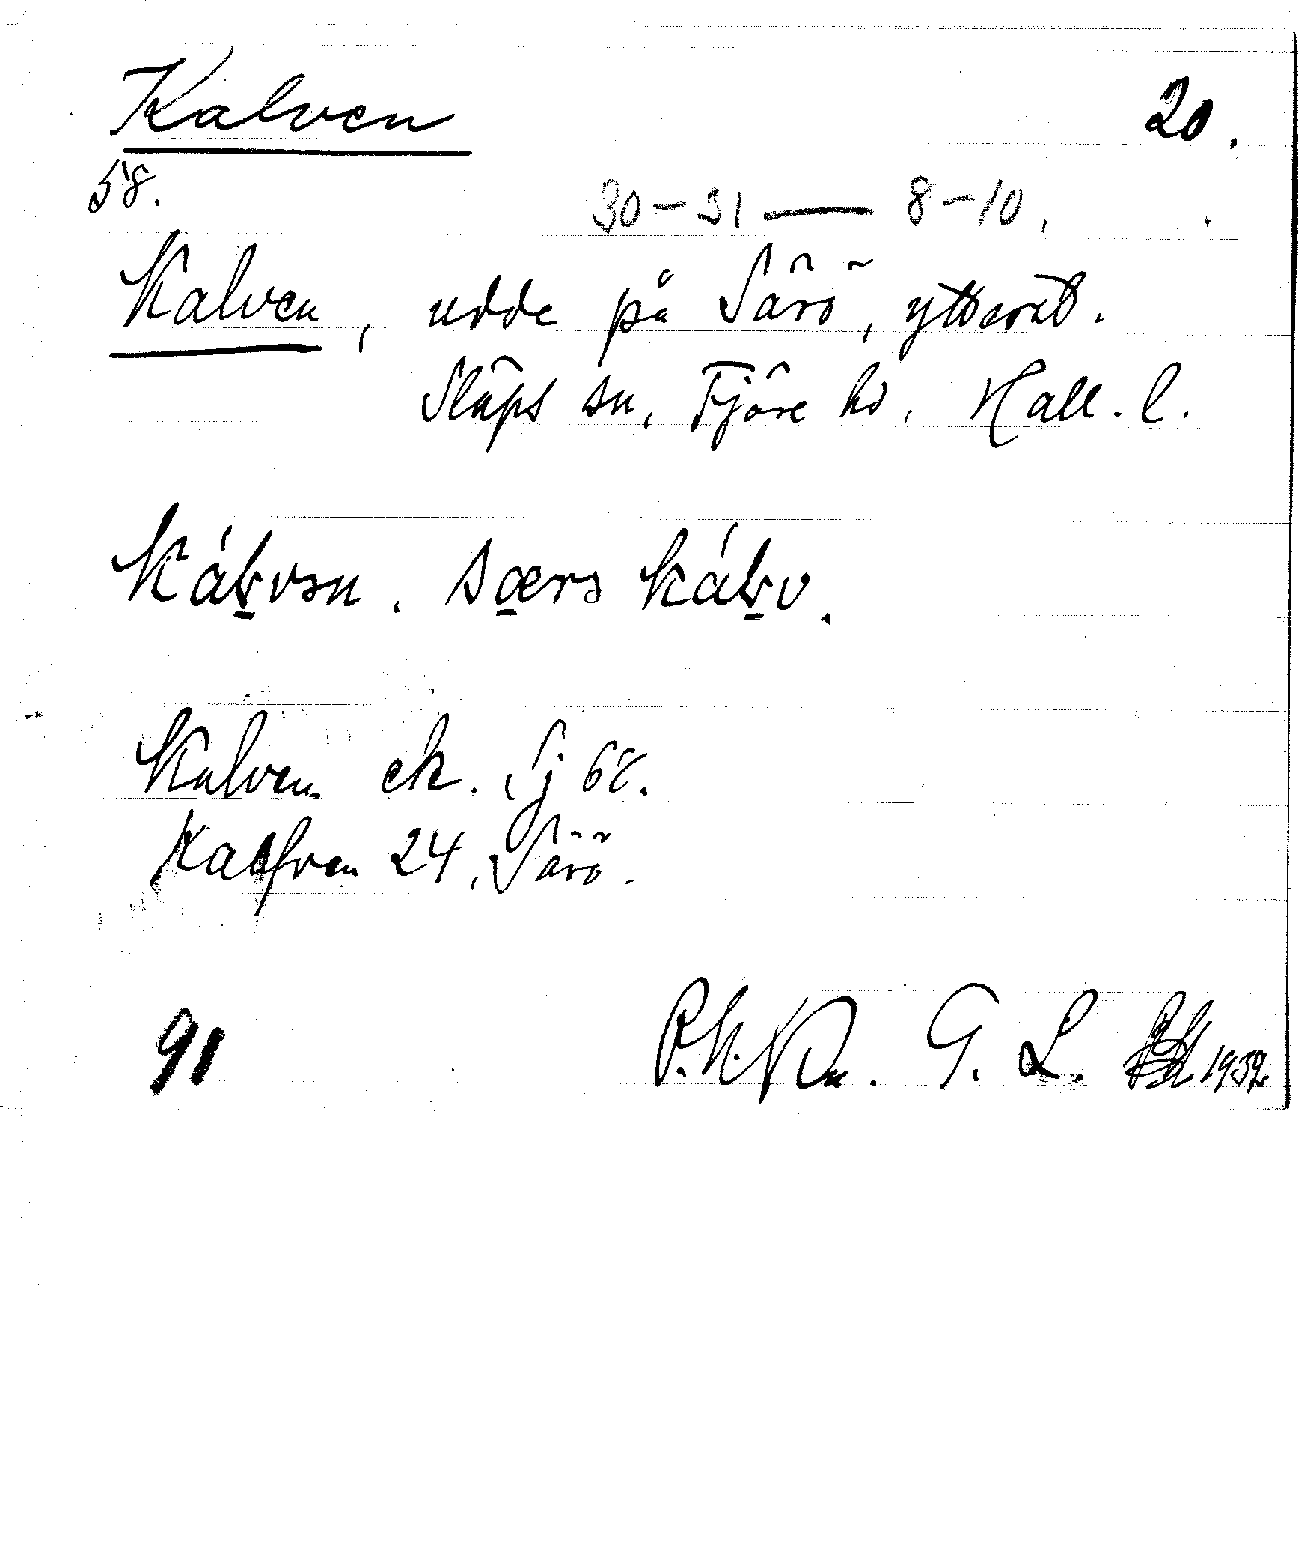 Kalven 20.
58.
30-31 — 8-10.
Kalven, udde på Särö, ytterst.
Släps sn, Fjäre hd, Hall. l.
Kalven ek. Sj 68.
Kalfven 24, Särö.
91 G. L. 1932